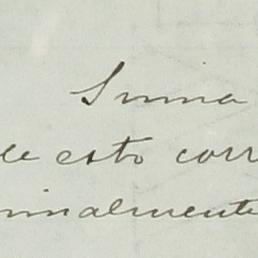 Suma
de esto corr
inalmente